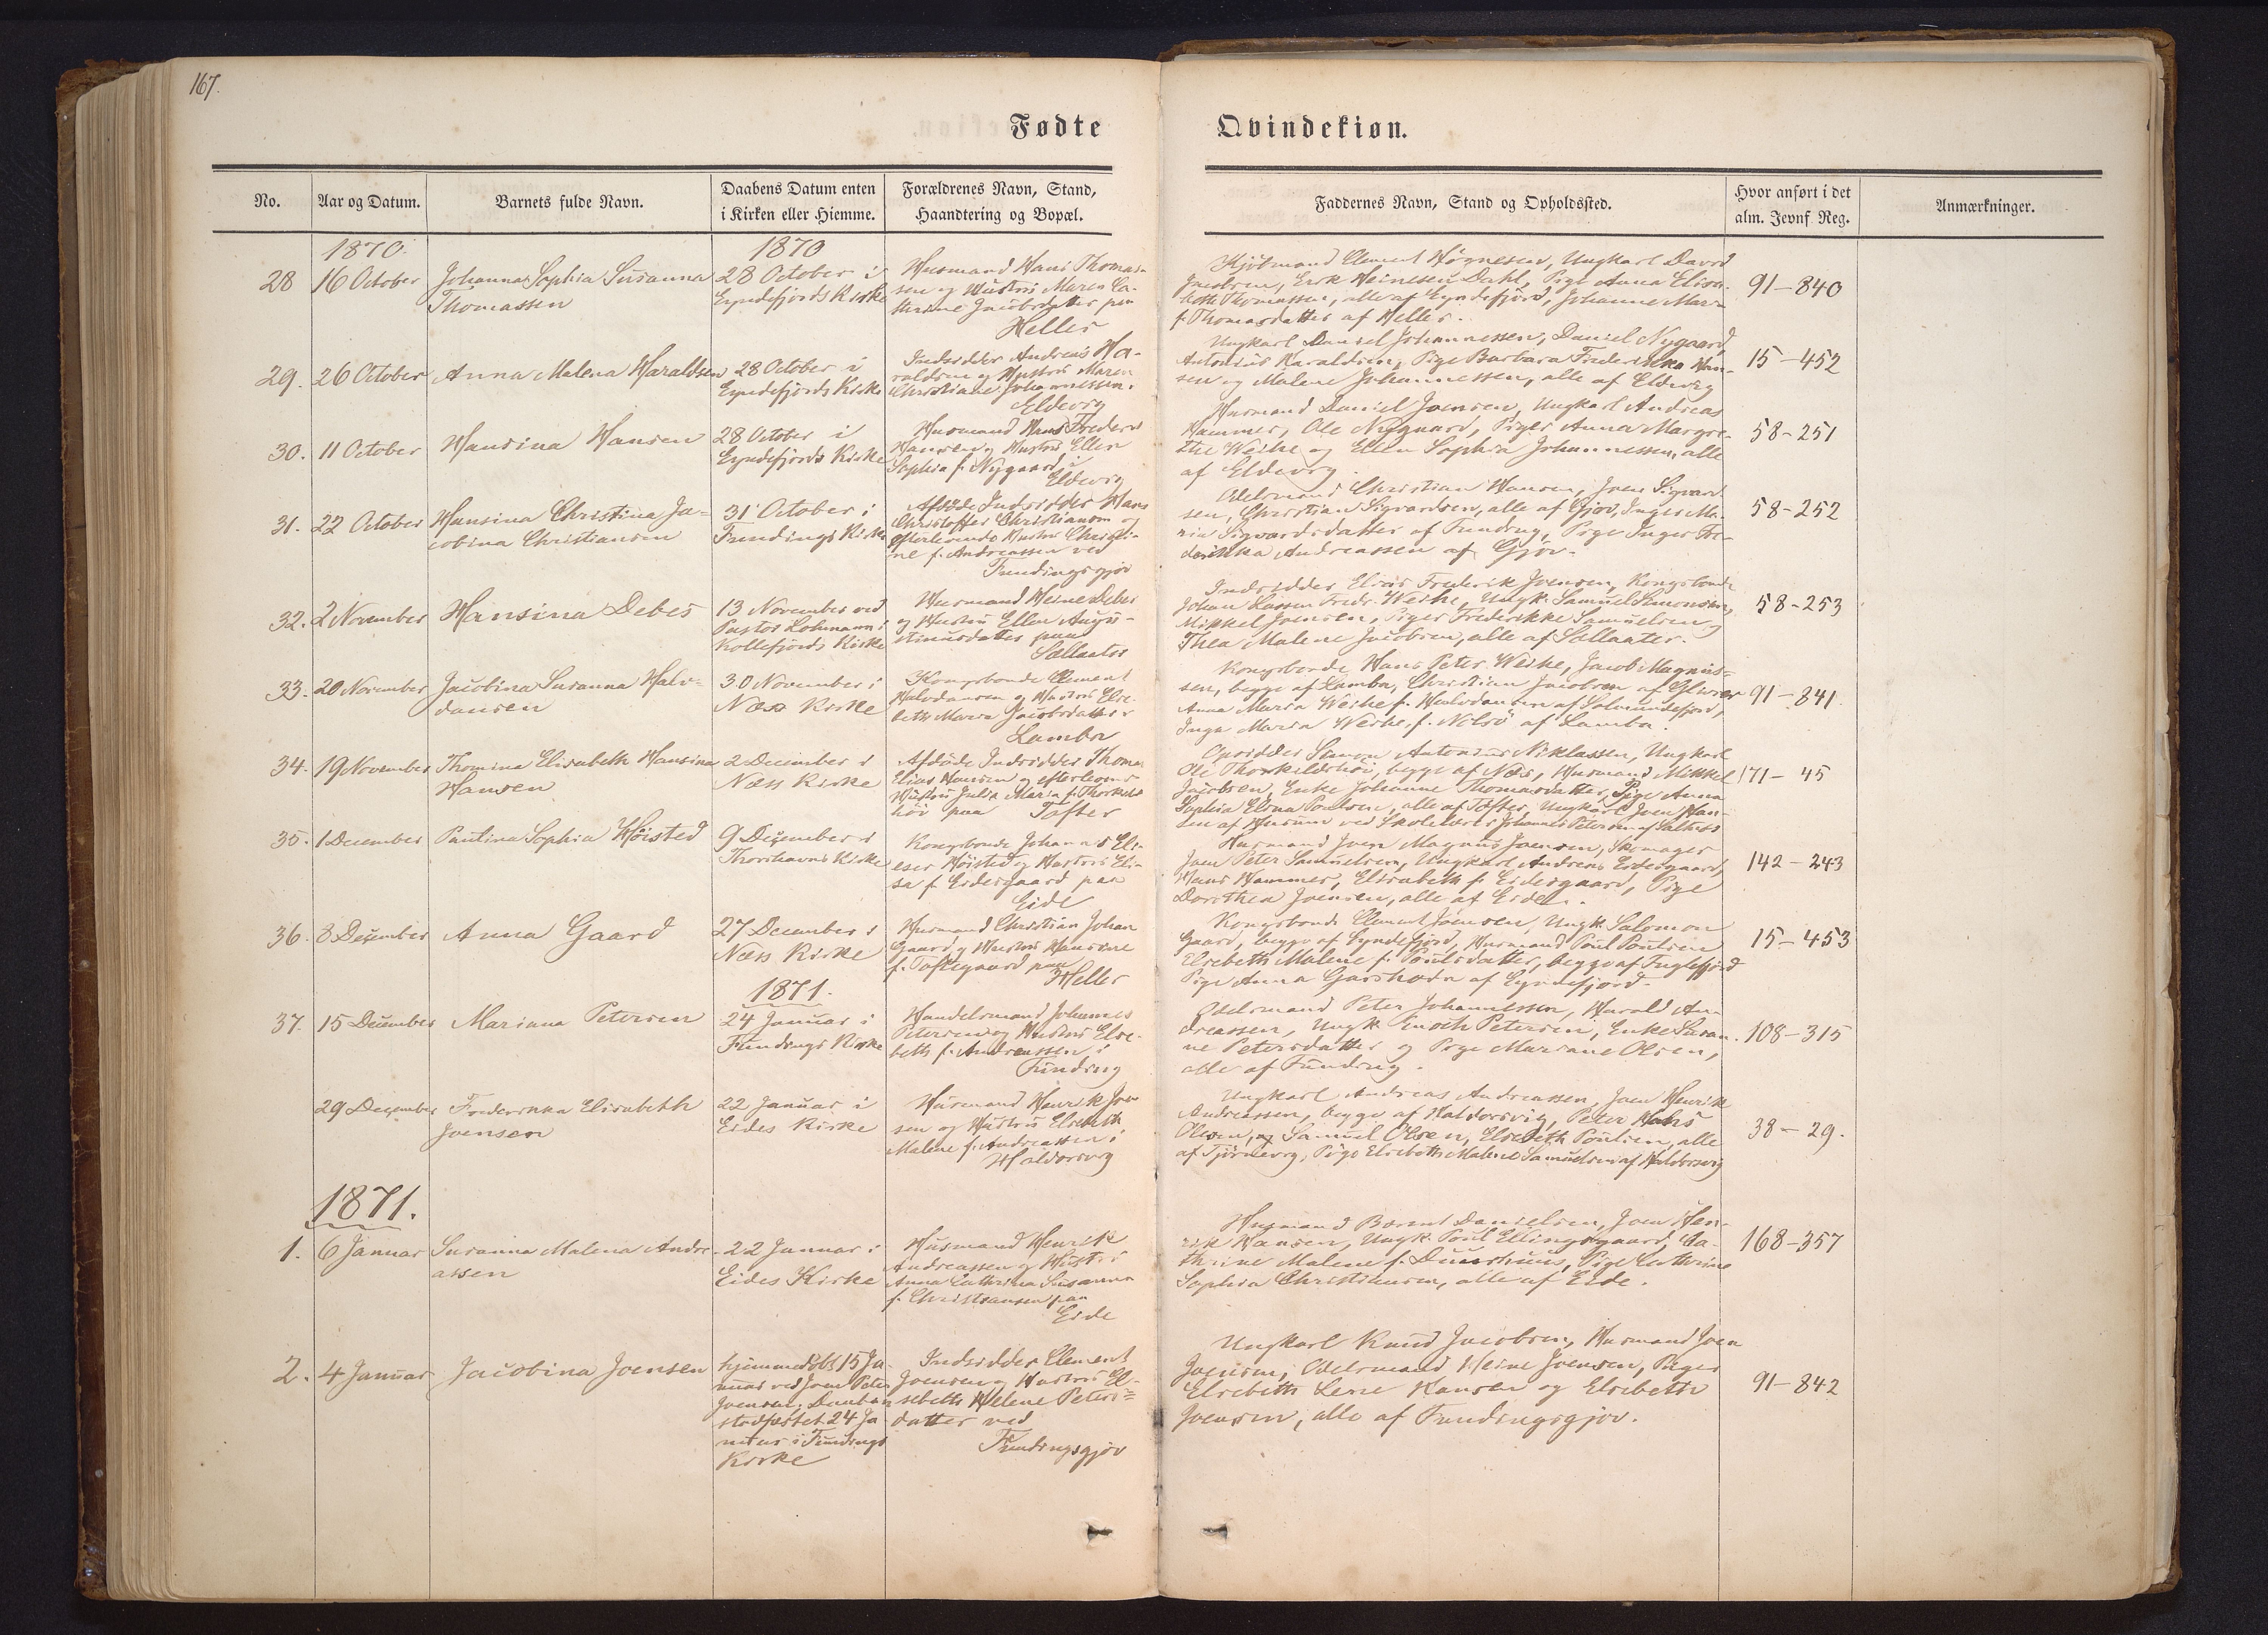 167.
Fødte
Qvindekiøn.
No.
Aar og Datum.
Barnets fulde Navn.
Daabens Datum enten
i Kirken eller Hiemme.
Forældrenes Navn, Stand,
Haandtering og Bopæl.
Faddernes Navn, Stand og Opholdssted.
Hvor anført i det
alm. Jevnf. Reg.
Anmærkninger.
1870.
1870
28
16 October
Johanna Sophia Susanna
Thomassen
28 October i
Eyndefjords Kirke
Husmand Hans Thomas-
sen og Hustru Maren Ca-
thrine Jacobsdatter paa
Heller
Ungkarl David
Jacobsen, Erik Heinesen Dahl, Pige Anna Elisa-
beth Thomassen, alle af Eyndefjord, Johanne Mari-
f. Thomasdatter af Heller.
91-840
29.
26 October
Anna Malena Haraldsen
28 October i
Eyndefjords Kirke
Indsidder Andreas Ha-
raldsen og Hustru Maren
Christiane Johannessen i
Eldevig
Ungkarl Daniel Johannessen, Daniel Nygaard,
Antonius Haraldsen, Pige Barbara Frederikka Han-
sen og Malene Johannessen, alle af Eldevig
15-452
30.
11 October
Hansina Hansen
28 October i
Eyndefjords Kirke
Husmand Hans Frederik
Hansen og Hustru Ellen
Sophia f. Nygaard i
Eldevig
Husmand Daniel Joensen, Ungkarl Andreas
Hammer, Ole Nygaard, Piger Anna Margre-
the Weihe og Ellen Sophia Johannessen, alle
af Eldevig.
58-251
31.
22 October
Hansina Christina Ja-
cobina Christiansen
31 October i
Fundings Kirke
Afdøde Indsidder Hans
Christoffer Christiansen og
efterlevende Hustru Christi-
ne f. Andreassen ved
Fundingsgjov
Odelsmand Christian Hansen, Joen Sigvard-
sen, Christian Sigvardsen, alle af Gjov, Inger Ma-
ria Sigvardsdatter af Funding, Pige Inger Fre-
derikka Andreassen af Gjov.
58-252
32.
2 November
Hansina Debes
13 November ved
Pastor Lohmann i
Kollefjords Kirke
Husmand Heine Debes
og Hustru Ellen Augu-
stinusdatter paa
Sællaater
Indsidder Elias Frederik Joensen, Kongsbonde
Johan Lassen Fredr. Weihe, Ungk. Samuel Simonsen,
Mikkel Joensen, Piger Frederikke Samuelsen og
Thea Malene Jacobsen, alle af Sællaater.
58-253
33.
20 November
Jacobina Susanna Halv-
dansen
30 November i
Næss Kirke
Kongsbonde Clement
Halvdansen og Hustru Else-
beth Maria Jacobsdatter i
Lamba
Kongsbonde Hans Peter Weihe, Jacob Magnus-
sen, begge af Lamba, Christian Jacobsen af Glivrer
Anna Maria Weihe f. Halvdansen af Solmundefjord,
Inga Maria Weihe f. Nilsö af Lamba.
91-841.
34.
19 November
Thomina Elisabeth Hansina
Hansen
2 December i
Næss Kirke
Afdöde Indsidder Thomas
Elias Hansen og efterleven-
Hustru Julia Maria f. Thorkels-
höi paa Tofter
Simon Antonius Niklassen, Ungkarl
Ole Thorkildshöi, begge af Næs, Husmand Mikkel
Jacobsen, Enke Johanne Thomasdatter, Pige Anna
Sophia Elena Poulsen, alle af Tofter, Ungkarl Joen Han-
sen af Husum ved Skolelærer Johannes Petersen af Saltnæs
171-45
35.
1 December
Paulina Sophia Höisted
9 December i
Thorshavns Kirke
Kongsbonde Johannes Eli-
eser Höisted og Hustru Eli-
sa f. Eidesgaard paa
Eide
Husmand Joen Magnus Joensen, Skomager
Joen Peter Sammelsen, Ungkarl Andreas Eidesgaard,
Hans Hammer, Elisabeth f. Eidesgaard, Pige
Dorothea Joensen, alle af Eide.
142-243
36.
8 December
Anna Gaard
27 December i
Næss Kirke
Husmand Christian Johan
Gaard og Hustru Hansine
f. Toftegaard paa
Heller
Kongsbonde Clement Joensen, Ungk. Salomon
Gaard, begge af Eyndefjord, Husmand Poul Poulsen
Elsebeth Malene f. Poulsdatter, begge af Fuglefjord
Pige Anna Garshodn af Eyndefjord.
15-453
1871.
37.
15 December
Mariana Petersen
24 Januar i
Fundings Kirke
Handelsmand Johannes
Petersen og Hustru Else-
beth f. Andreassen i
Funding
Odelsmand Peter Johannessen, Harald An-
dreassen, Ungk. Enoch Petersen, Enke Susan-
ne Petersdatter og Pige Mariane Olsen,
alle af Funding.
108-315
29 December
Frederikka Elisabeth
Joensen
22 Januar i
Eides Kirke
Husmand Henrik Joen-
sen og Hustru Elsebeth
Malene f. Andreassen i
Haldorsvig
Ungkarl Andreas Andreassen, Joen Henrik
Andreassen, begge af Haldorsvig, Peter Hans
Olesen, og Samuel Olsen, Elsebeth Poulsen, alle
af Tjörnevig, Pige Elsebeth Malene Samuelsen af Haldorsvig
38-29.
1871.
1.
6 Januar
Susanna Malena Andre-
assen
22 Januar i
Eides Kirke
Husmand Henrik
Andreassen og Hustru
Anna Cathrina Susanna
f. Christiansen paa
Eide
Husmand Danielsen, Joen Hen-
rik Hansen, Ungk. Poul Ellingsgaard, Ca-
thrine Malene f. Duurhuus, Pige Cathrine
Sophia Christiansen, alle af Eide.
168-357
2.
4 Januar
Jacobina Joensen
hjemmedöbt 15 Ja-
nuar ved Joen Peter
Joensen; Daaben
stadfæstet 24 Ja-
nuar i Fundings
Kirke
Indsidder Clement
Joensen og Hustru El-
sebeth Helene Peters-
datter ved
Fundingsgjov
Ungkarl Knud Jacobsen, Husmand Joen
Joensen, Odelsmand Heine Joensen, Piger
Elsebeth Lene Hansen og Elsebeth
Joensen, alle af Fundingsgjov.
91-842